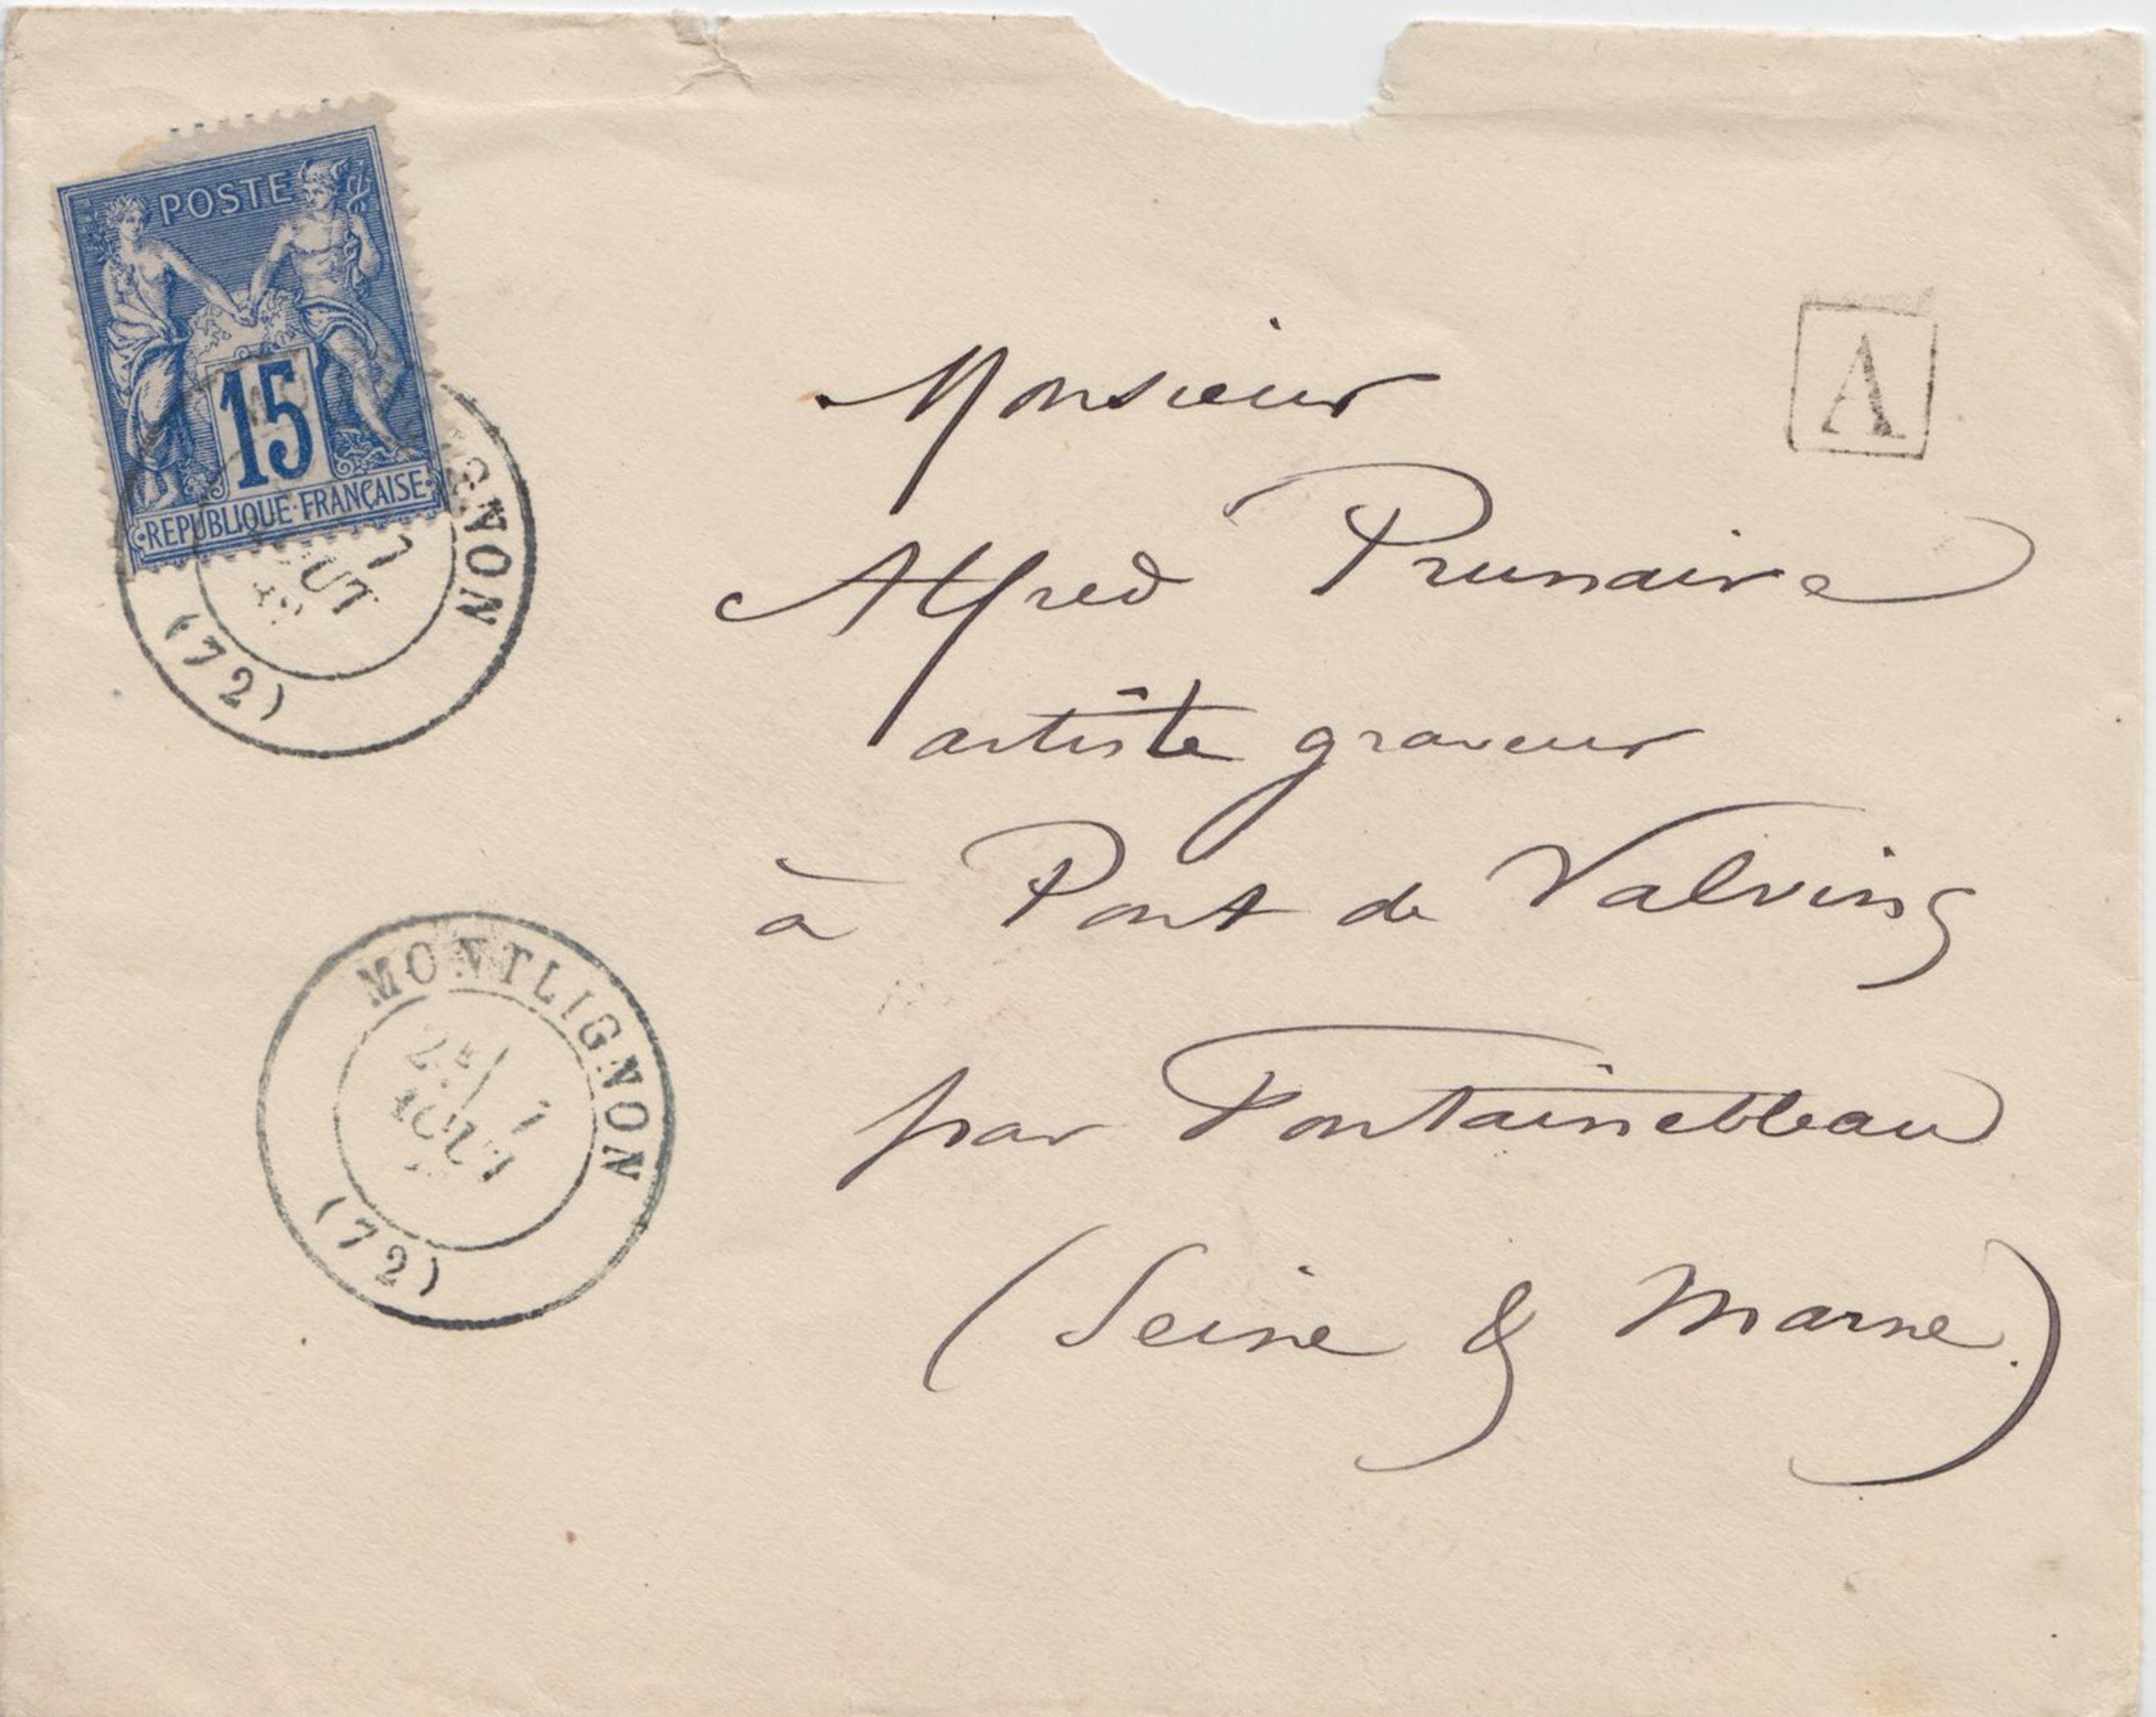 POSTE
15
REPUBLIQUE FRANÇAISE
GNON
7
OUT
(72)
A
Monsieur
Alfred Prunaire
artiste graveur
à Pont de Valvins
par Fontainebleau
(Seine & Marne)
MONTLIGNON
2E
7
AOUT
(72)